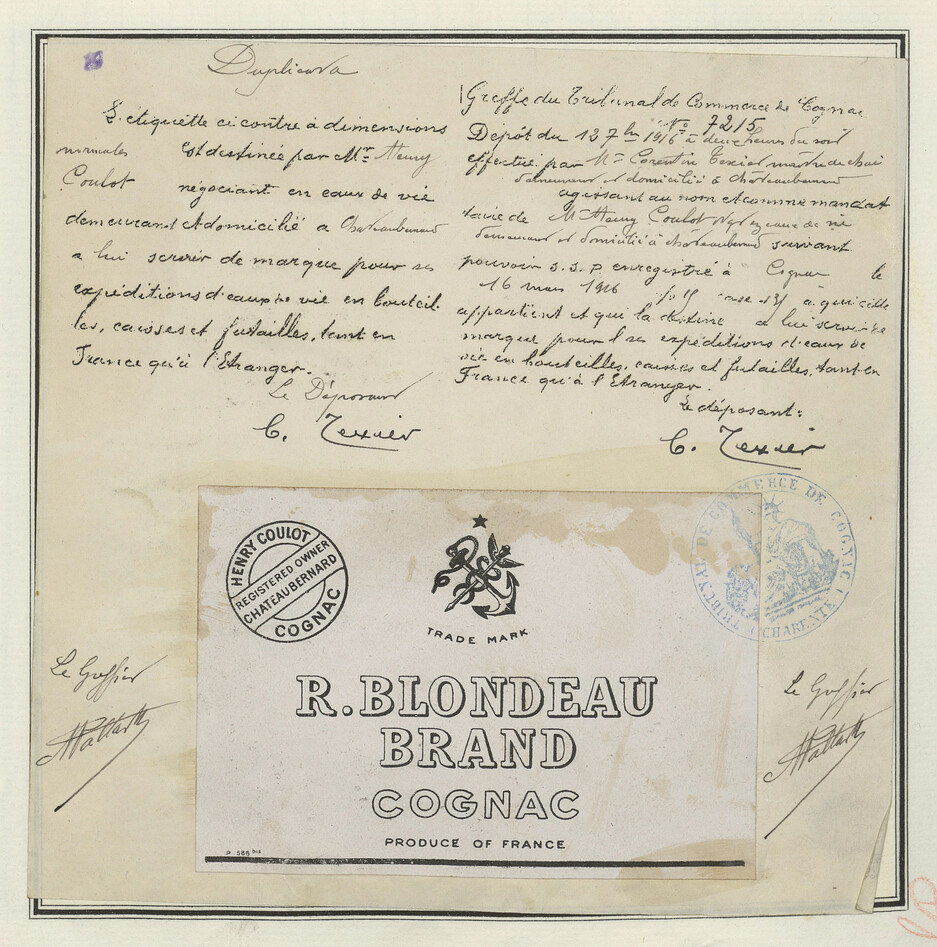 Duplicata
L'étiquette ci contre à dimensions
normales est destinée par Mr Henry
Coulot négociant en eaux de vie
demeurant et domicilié à Chateaubernard
à lui servir de marque pour ses
expéditions d'eaux de vie en bouteil-
les, caisses et futailles, tant en
France qu'à l'Etranger.
Le Déposant
C. Texier
Greffe du Tribunal de Commerce de Cognac
No 7215
Dépôt du 12 7bre 1916 à deux heures du soir
effectué par Mr Corentin Texier maître de chai
demeurant et domicilié à Châteaubernard
agissant au nom et comme mandat
taire de Mr Henry Coulot Ngt en eaux de vie
demeurant et domicilié à Châteaubernard suivant
pouvoir s.s.p. enregistré à Cognac le
16 mars 1916 à qui elle
appartient et qui la destine à lui servir de
marque pour l ses expéditions d'eaux de
vie en bouteilles, caisses et futailles, tant en
France qu'à l'Etranger.
Le déposant:
C. Texier
HENRY COULOT
REGISTERED OWNER
CHATEAUBERNARD
COGNAC
TRADE MARK
R. BLONDEAU
BRAND
COGNAC
PRODUCE OF FRANCE
P. 586 bis
TRIBUNAL DE COMMERCE DE COGNAC
(CHARENTE)
Le Greffier
Le Greffier